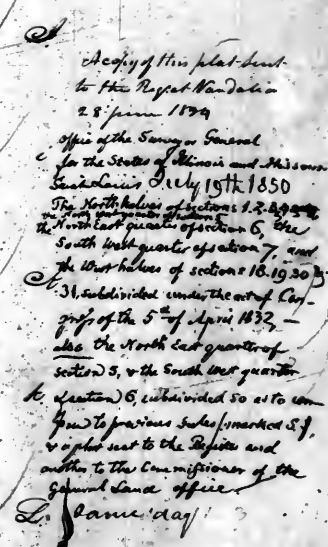 A copy of this plat sent
to the Regist Vandalia
28 June 1834
Office of the Surveyor General
for the States of Illinois and Missouri
Saint Louis July 19th 1850
The North halves of sections 1.2.3.4 and
the North West quarter of section 5
the North East quarter of section 6, the
South West quarter of section 7, and
the West halves of sections 18.19.30 &
31, subdivided under the act of Con-
gress of the 5th of April 1832, —
also the North East quarter of
section 5, & the South West quarter
of section 6, subdivided so as to con
form to previous sales (marked S.),
& a plat sent to the Register and
another to the Commissioner of the
General Land office.